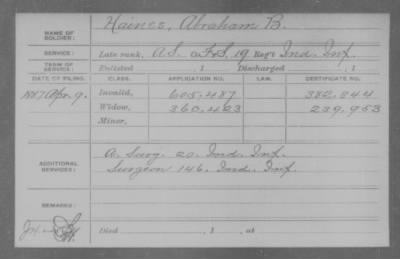 NAME OF SOLDIER: Haines, Abraham B.
SERVICE: Late rank, A.S. F&S, 19 Reg't Ind. Inf.
TERM OF SERVICE: Enlisted , 1 Discharged , 1
DATE OF FILING. CLASS. APPLICATION NO. LAW. CERTIFICATE NO.
1887 Apr. 9. Invalid, 605,487 382,844
Widow, 360,423 239,953
Minor,
ADDITIONAL SERVICES: A. Surg. 20. Ind. Inf.
Surgeon 146. Ind. Inf.
REMARKS:
Died , 1 , at